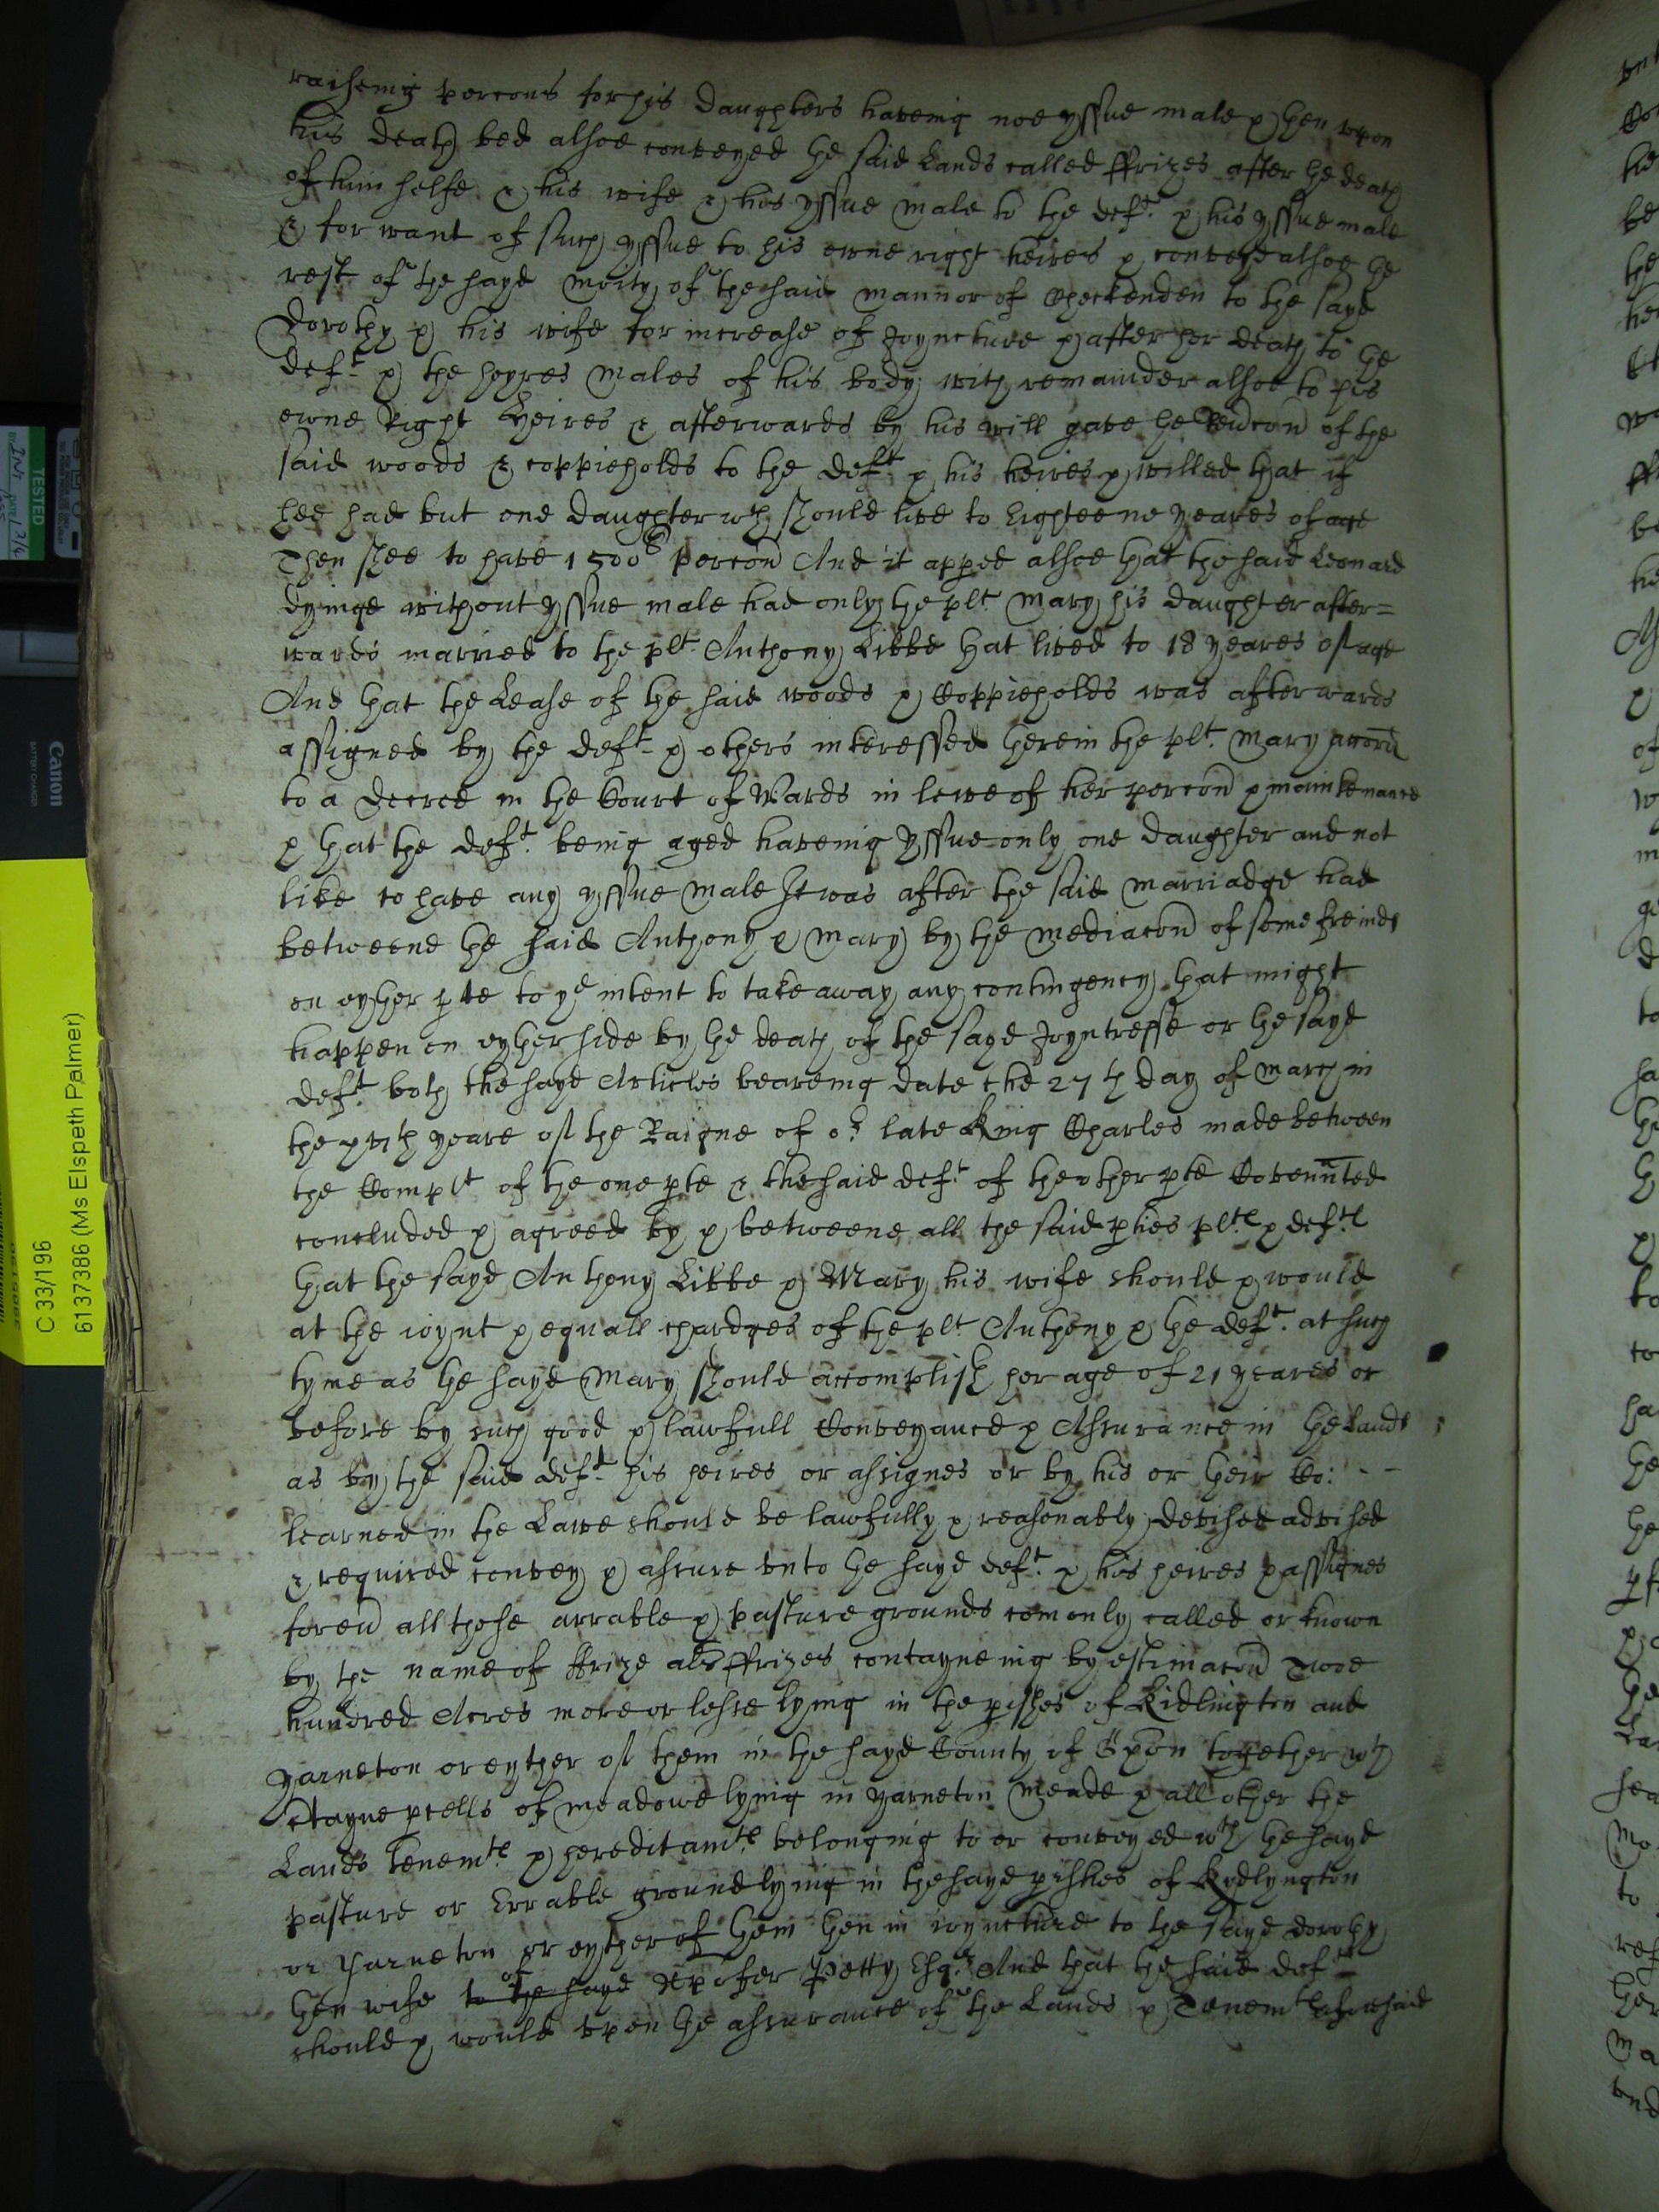 raiseing porcons for his daughters haveing noe yssue male & then upon
his death bed alsoe conveyed the said Lands called ffrizes after the death
of him selfe & his wife & his yssue male to the deft. & his yssue male
& for want of such yssue to his owne right heires & conveyed alsoe the
rest of the sayd moity of the said mannor of Checkenden to the sayd
Dorothy & his wife for increase of Joyncture & after her death to the
deft. & the heyres males of his body with remainder alsoe to his
owne Right Heires & afterwards by his will gave the Revercon of the
said woods & coppieholds to the deft & his heires & willed that if
hee had but one daughter wch should live to Eighteene yeares of age
Then shee to have 1500l porcon And it apped alsoe that the said Leonard
dyinge without yssue male had only the plt. Mary his daughter after=
wards married to the plt. Anthony Libbe that lived to 18 yeares of age
And that the Lease of the said woods & Coppieholds was afterwards
assigned by the deft. & others interessed therein the plt. Mary accord
to a decree in the Court of Wards in liewe of her porcon & maintenance
& that the deft. being aged haveing yssue only one daughter and not
like to have any yssue male It was after the said marriadge had
betweene the said Anthony & Mary by the mediacon of some freinds
on eyther pte to ye intent to take away any contingency that might
happen on eyther side by the death of the sayd Joyntresse or the sayd
deft. both the sayd Articles beareing date the 27th day of March in
the xvth yeare of the Raigne of or late King Charles made between
the Complt of the one pte & the said deft. of the other pte Covennted
concluded & agreed by & betweene all the said pties plts & defts
that the sayd Anthony Libbe & Mary his wife should & would
at the ioynt & equall chardges of the plt. Anthony & the deft. at such
tyme as the sayd Mary should accomplish her age of 21 yeares or
before by such good & lawfull Conveyance & Assurance in the Lands
as by the said deft. his heires or assignes or by his or their Co: - -
learned in the Lawe should be lawfully & reasonably devised advised
& required convey & assure unto the sayd deft. & his heires & assignes
forevr all those arrable & pasture grounds comonly called or known
by the name of ffrize als ffrizes contayneing by estimacon Twoe
hundred Acres more or lesse lying in the pishes of Kidlington and
Yarneton or eyther of them in the sayd County of Oxon together wth
ctayne pcells of meadowe lying in Yarneton meade & all other the
Lands tenemts & hereditamts belonging to or conveyed wth the sayd
pasture or Errable ground lying in the sayd pishes of Kydlyngton
or Yarneton or eyther of them then in ioyncture to the sayd Dorothy
then wife to the sayd of Xpofer Petty Esqr. And that the said deft
should & would upon the assurance of the Lands & Tenemts aforesaid
TESTED
Canon
BATTERY CHARGER
C 33/196
6137386 (Ms Elspeth Palmer)